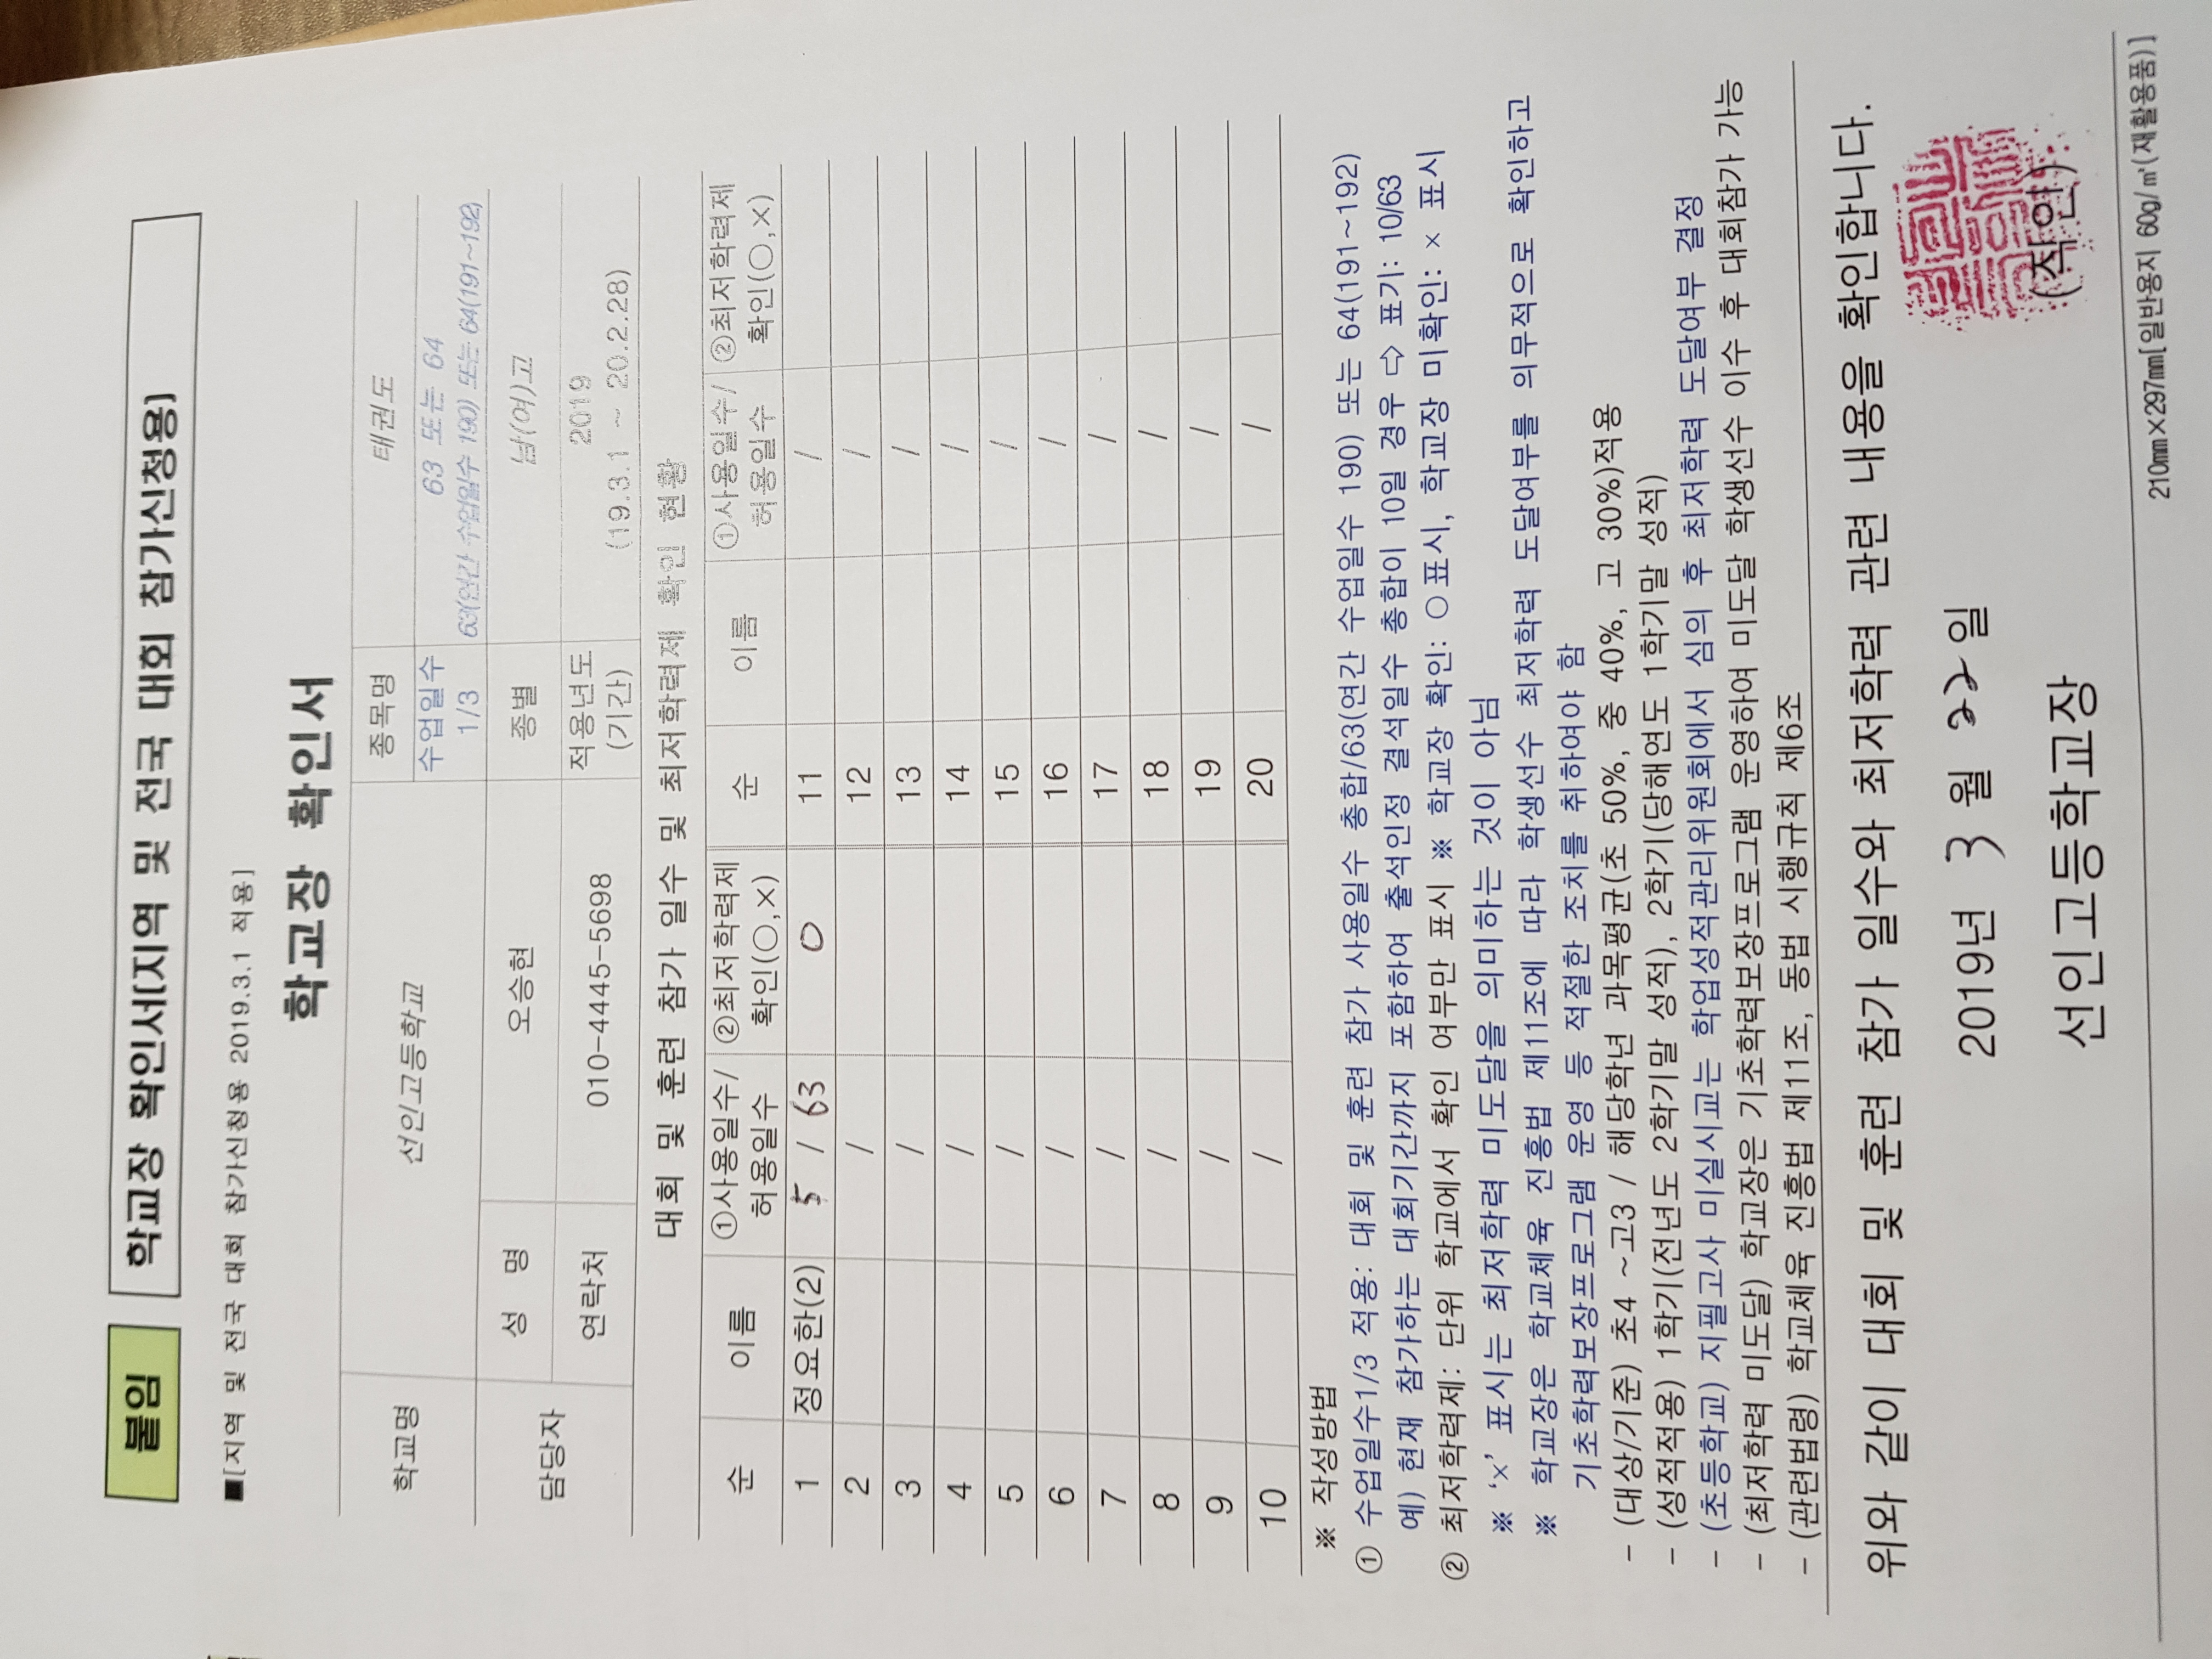 붙임
학교장 확인서(지역 및 전국 대회 참가신청용)
■[지역 및 전국 대회 참가신청용 2019.3.1 적용]
학교장 확인서
학교명 선인고등학교 종목명 태권도
수업일수 1/3 63 또는 64
63(연간 수업일수 190) 또는 64(191~192)
담당자 성 명 오승현 종별 남(여)고
연락처 010-4445-5698 적용년도 (기간) 2019
(19.3.1 ~ 20.2.28)
대회 및 훈련 참가 일수 및 최저학력제 확인 현황
순 이름 ①사용일수/허용일수 ②최저학력제 확인(○,×) 순 이름 ①사용일수/허용일수 ②최저학력제 확인(○,×)
1 정요한(2) 5 / 63 ○ 11 /
2 / 12 /
3 / 13 /
4 / 14 /
5 / 15 /
6 / 16 /
7 / 17 /
8 / 18 /
9 / 19 /
10 / 20 /
※ 작성방법
① 수업일수1/3 적용: 대회 및 훈련 참가 사용일수 총합/63(연간 수업일수 190) 또는 64(191~192)
예) 현재 참가하는 대회기간까지 포함하여 출석인정 결석일수 총합이 10일 경우 ⇨ 표기: 10/63
② 최저학력제: 단위 학교에서 확인 여부만 표시 ※ 학교장 확인: ○표시, 학교장 미확인: × 표시
※ '×' 표시는 최저학력 미도달을 의미하는 것이 아님
※ 학교장은 학교체육 진흥법 제11조에 따라 학생선수 최저학력 도달여부를 의무적으로 확인하고
기초학력보장프로그램 운영 등 적절한 조치를 취하여야 함
- (대상/기준) 초4 ~고3 / 해당학년 과목평균(초 50%, 중 40%, 고 30%)적용
- (성적적용) 1학기(전년도 2학기말 성적), 2학기(당해연도 1학기말 성적)
- (초등학교) 지필고사 미실시교는 학업성적관리위원회에서 심의 후 최저학력 도달여부 결정
- (최저학력 미도달) 학교장은 기초학력보장프로그램 운영하여 미도달 학생선수 이수 후 대회참가 가능
- (관련법령) 학교체육 진흥법 제11조, 동법 시행규칙 제6조
위와 같이 대회 및 훈련 참가 일수와 최저학력 관련 내용을 확인합니다.
2019년 3 월 22 일
선인고등학교장 (직인)
210㎜×297㎜[일반용지 60g/㎡(재활용품)]